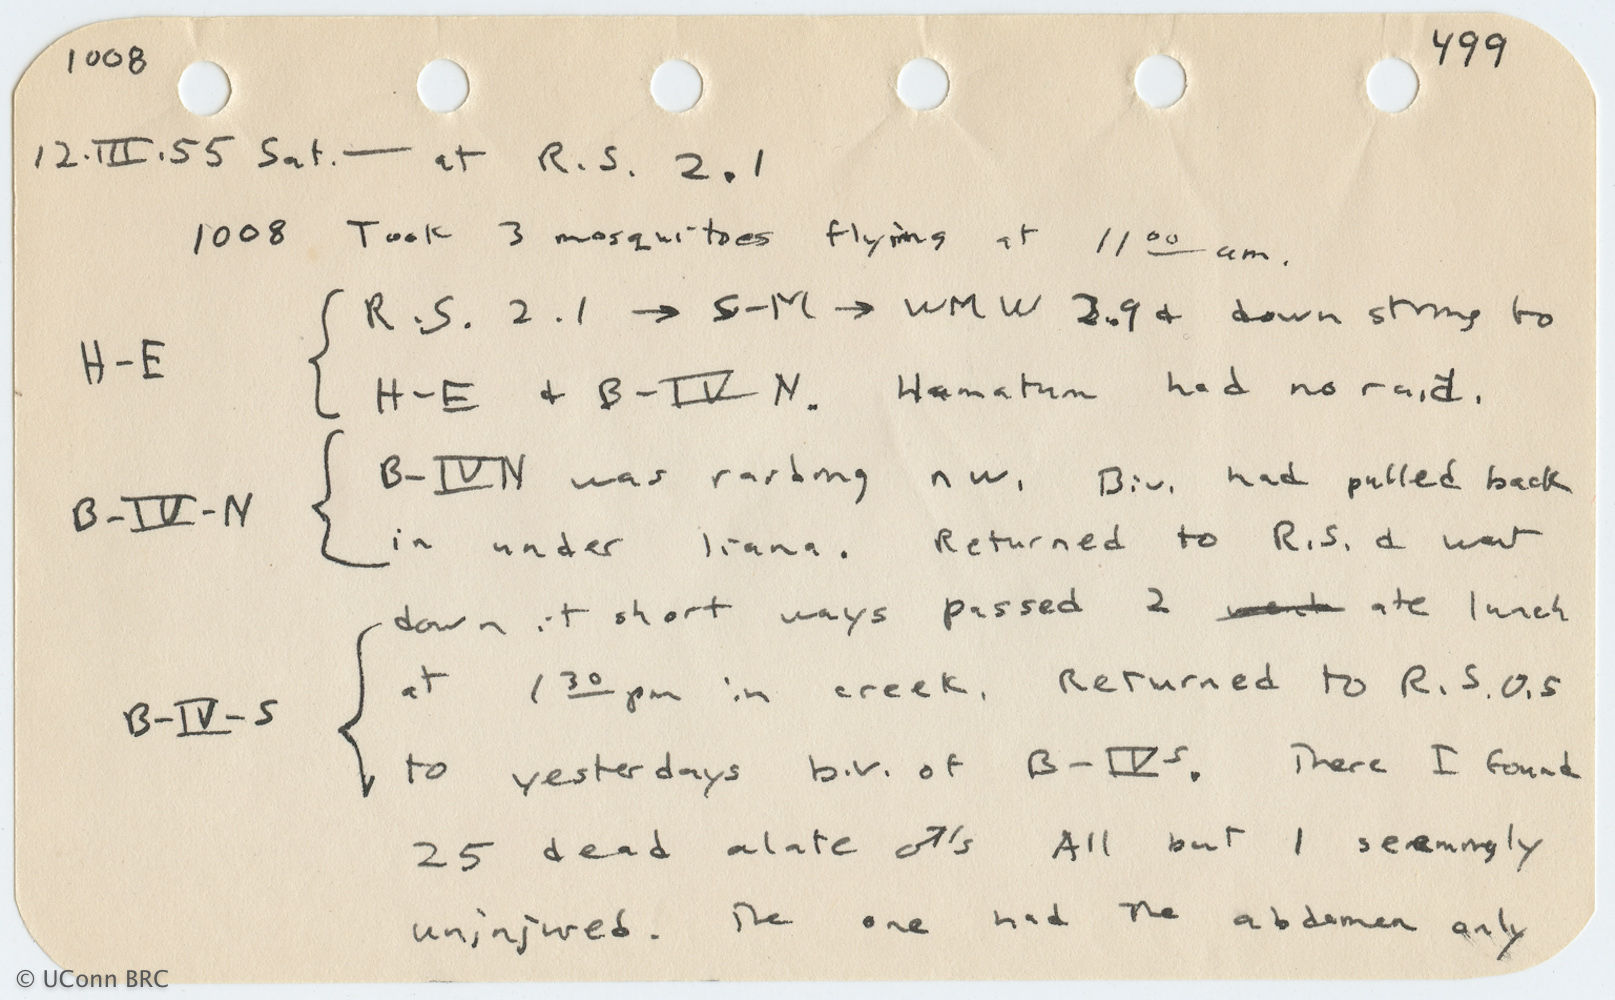 1008 499
12.III.55 Sat. — at R.S. 2.1
1008 Took 3 mosquitoes flying at 11 00 am.
H-E
R.S. 2.1 → S-M → WMW 2.9 & down string to
H-E & B-IV N. Hamatum had no raid.
B-IV-N
B-IVN was raiding nw. Biv. had pulled back
in under liana. Returned to R.S. & went
B-IV-S
down it short ways passed 2 ate lunch
at 1 30 pm in creek. Returned to R.S. 0.5
to yesterdays biv. of B-IV S. There I found
25 dead alate ♂'s All but 1 seemingly
uninjured. The one had the abdomen only
© UConn BRC